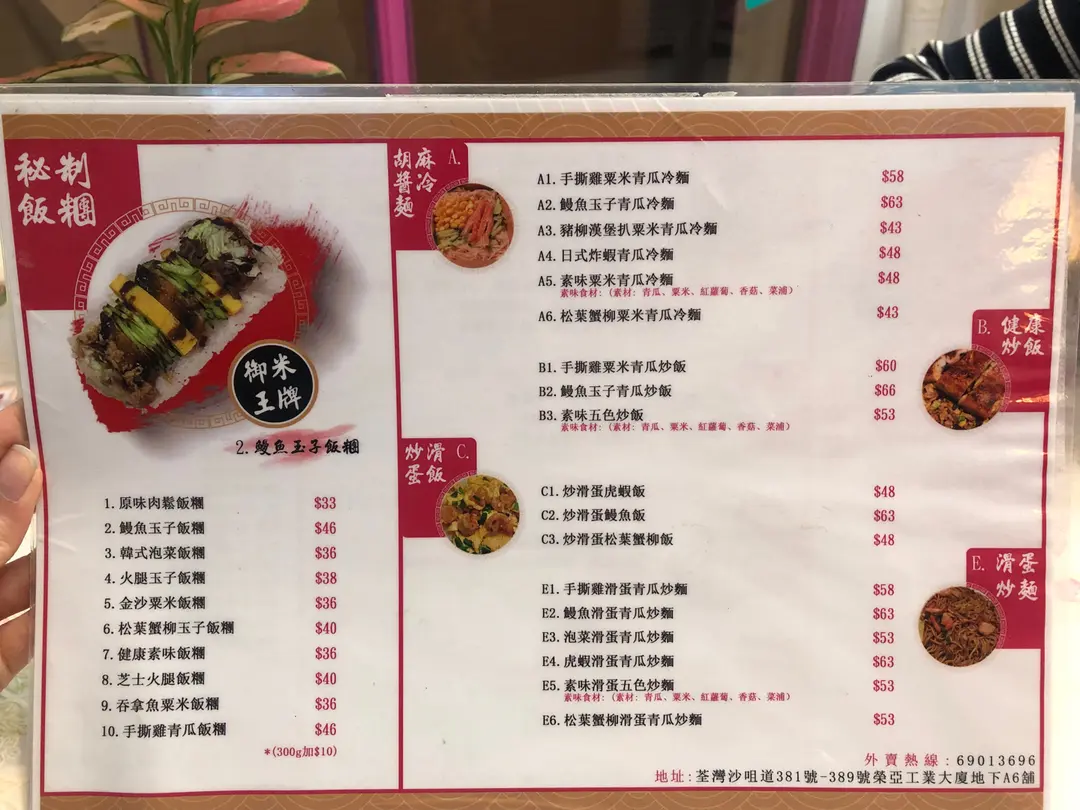 秘制
飯糰
御米
王牌
2. 鰻魚玉子飯糰
1. 原味肉鬆飯糰 $33
2. 鰻魚玉子飯糰 $46
3. 韓式泡菜飯糰 $36
4. 火腿玉子飯糰 $38
5. 金沙粟米飯糰 $36
6. 松葉蟹柳玉子飯糰 $40
7. 健康素味飯糰 $36
8. 芝士火腿飯糰 $40
9. 吞拿魚粟米飯糰 $36
10. 手撕雞青瓜飯糰 $46
*(300g加$10)
胡麻醬冷麵 A.
A1. 手撕雞粟米青瓜冷麵 $58
A2. 鰻魚玉子青瓜冷麵 $63
A3. 豬柳漢堡扒粟米青瓜冷麵 $43
A4. 日式炸蝦青瓜冷麵 $48
A5. 素味粟米青瓜冷麵 $48
素味食材: (素材: 青瓜、粟米、紅蘿蔔、香菇、菜浦)
A6. 松葉蟹柳粟米青瓜冷麵 $43
B. 健康
炒飯
B1. 手撕雞粟米青瓜炒飯 $60
B2. 鰻魚玉子青瓜炒飯 $66
B3. 素味五色炒飯 $53
素味食材: (素材: 青瓜、粟米、紅蘿蔔、香菇、菜浦)
炒滑蛋飯 C.
C1. 炒滑蛋虎蝦飯 $48
C2. 炒滑蛋鰻魚飯 $63
C3. 炒滑蛋松葉蟹柳飯 $48
E. 滑蛋
炒麵
E1. 手撕雞滑蛋青瓜炒麵 $58
E2. 鰻魚滑蛋青瓜炒麵 $63
E3. 泡菜滑蛋青瓜炒麵 $53
E4. 虎蝦滑蛋青瓜炒麵 $63
E5. 素味滑蛋五色炒麵 $53
素味食材: (素材: 青瓜、粟米、紅蘿蔔、香菇、菜浦)
E6. 松葉蟹柳滑蛋青瓜炒麵 $53
外賣熱線: 69013696
地址: 荃灣沙咀道381號-389號榮亞工業大廈地下A6舖